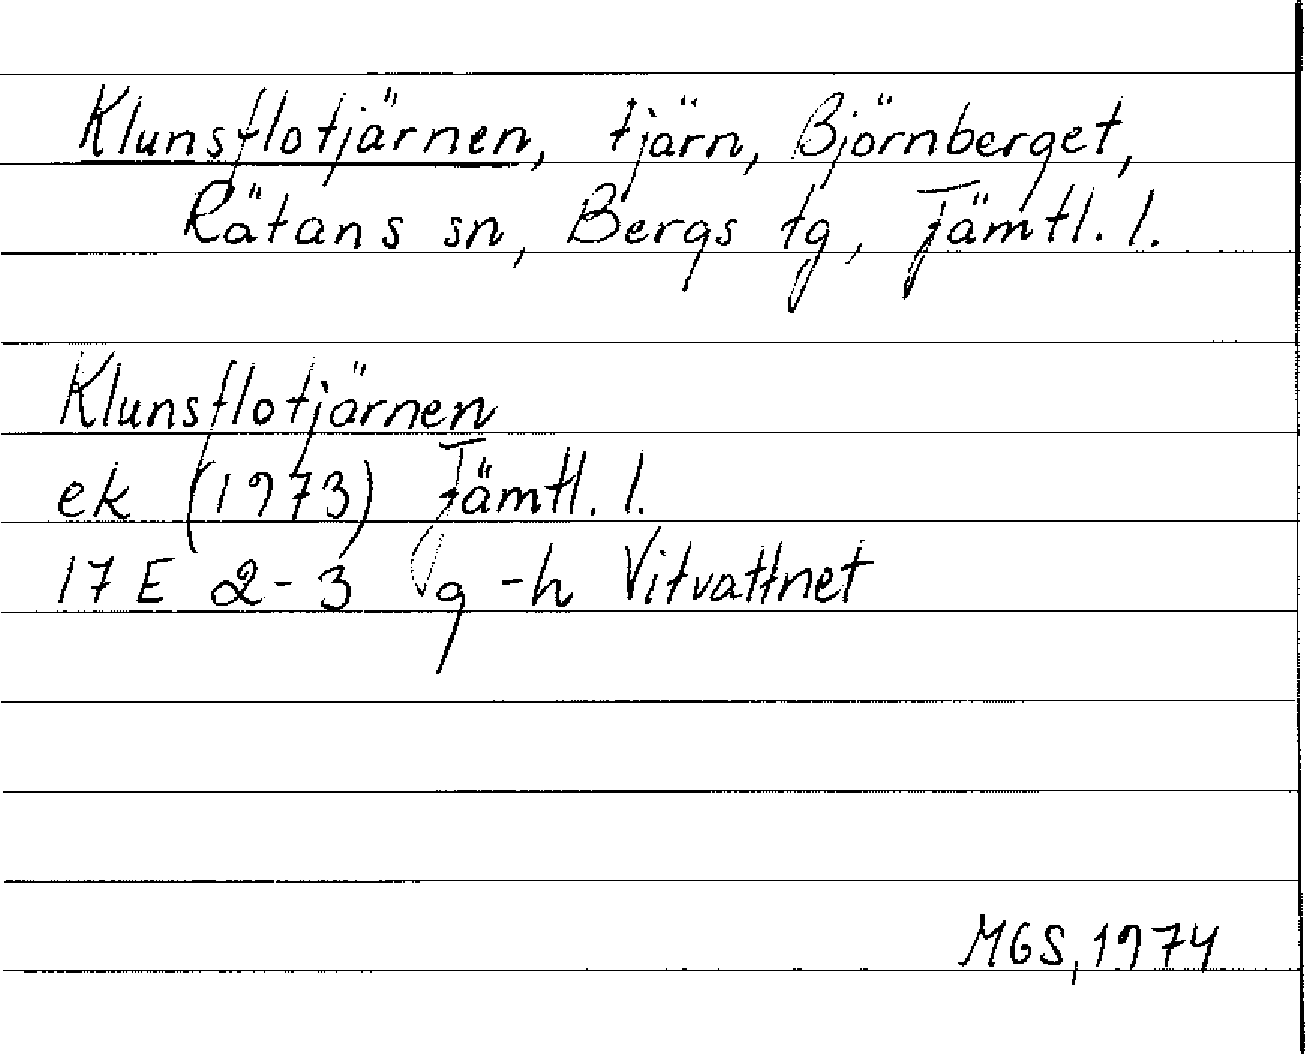 Klunsflotjärnen, tjärn, Björnberget,
Rätans sn, Bergs tg, Jämtl. l.
Klunsflotjärnen
ek (1973) Jämtl. l.
17 E 2-3 g-h Vitvattnet
MGS, 1974